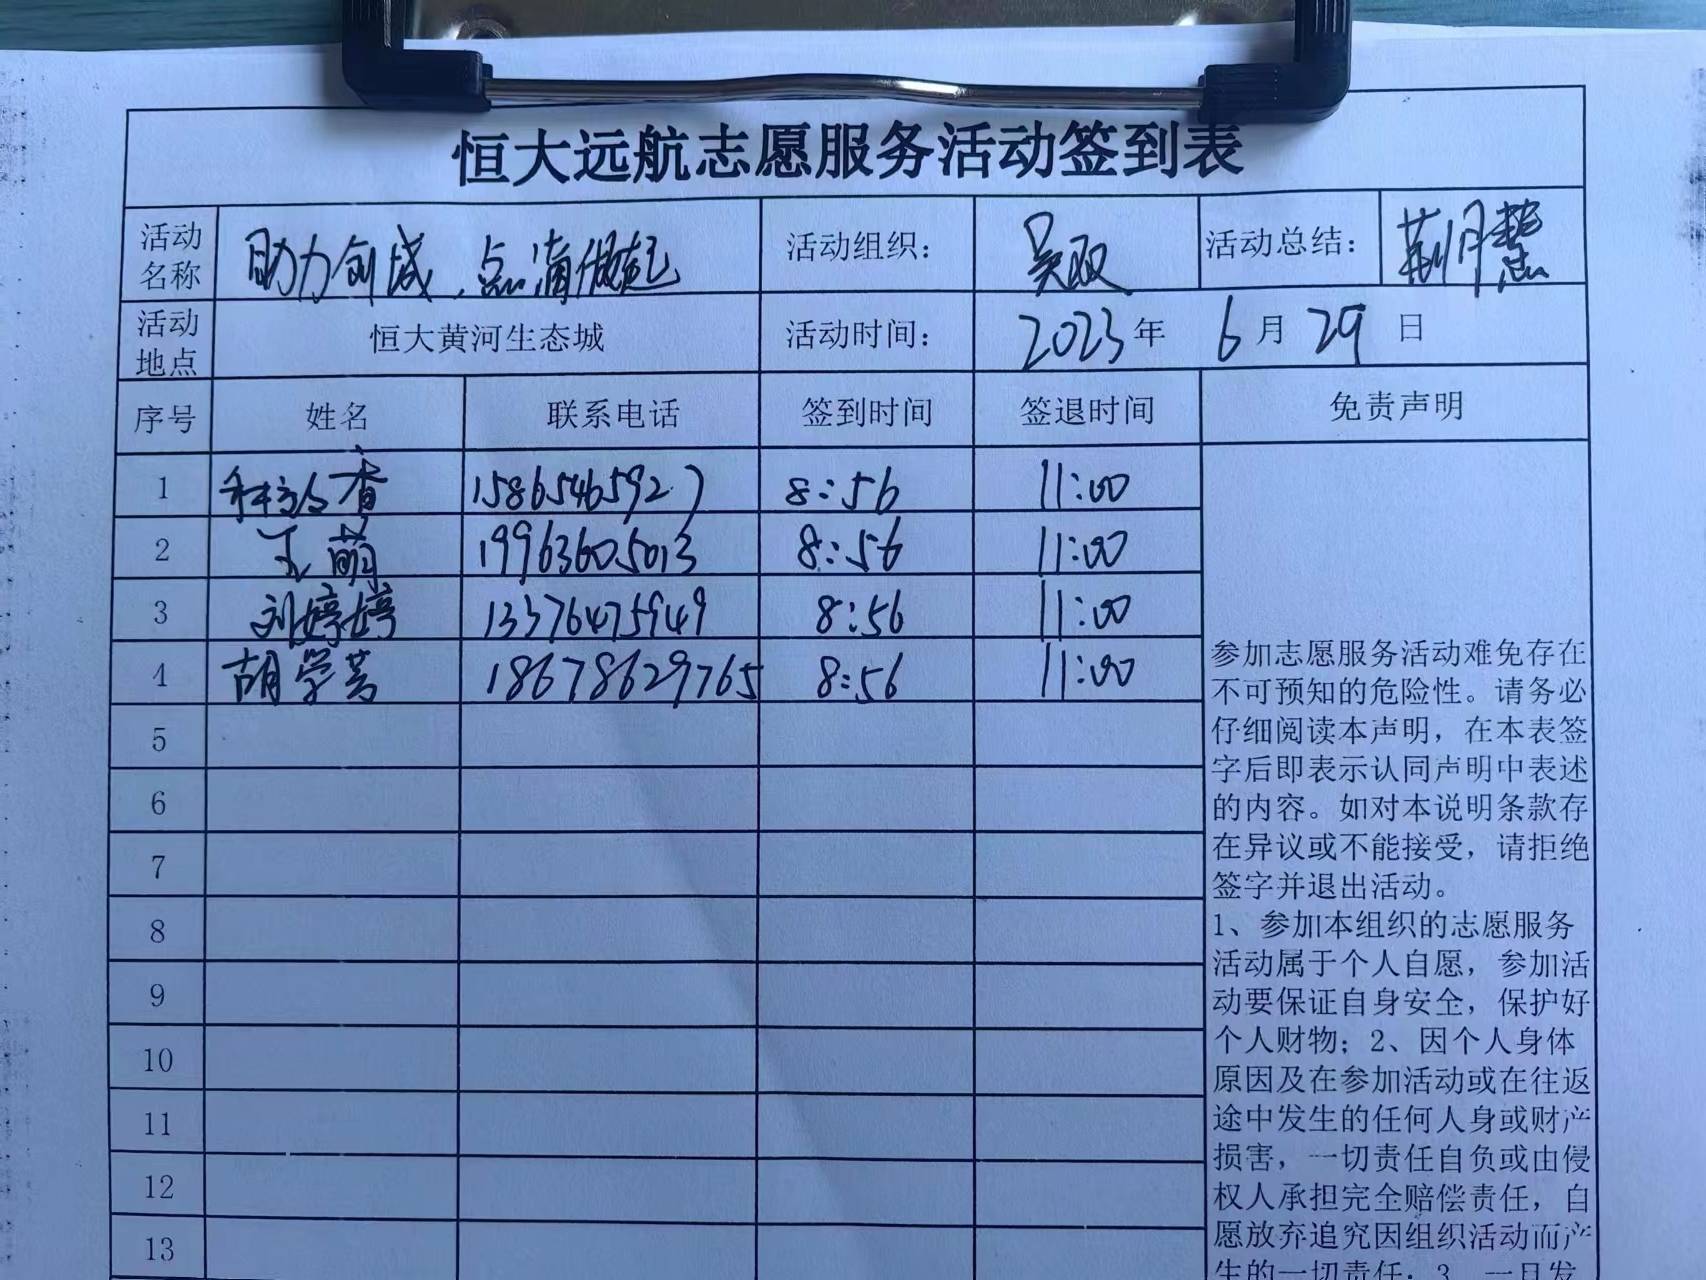 恒大远航志愿服务活动签到表
活动名称 助力创城、点滴做起 活动组织： 吴双 活动总结： 荆月慧
活动地点 恒大黄河生态城 活动时间： 2023年 6月 29日
序号 姓名 联系电话 签到时间 签退时间 免责声明
1 香 15865465927 8:56 11:00
2 王萌 19963605013 8:56 11:00
3 刘婷婷 13376475949 8:56 11:00
4 胡学芳 18678629765 8:56 11:00
5
6
7
8
9
10
11
12
13
参加志愿服务活动难免存在
不可预知的危险性。请务必
仔细阅读本声明，在本表签
字后即表示认同声明中表述
的内容。如对本说明条款存
在异议或不能接受，请拒绝
签字并退出活动。
1、参加本组织的志愿服务
活动属于个人自愿，参加活
动要保证自身安全，保护好
个人财物；2、因个人身体
原因及在参加活动或在往返
途中发生的任何人身或财产
损害，一切责任自负或由侵
权人承担完全赔偿责任，自
愿放弃追究因组织活动而产
生的一切责任；3、一旦发